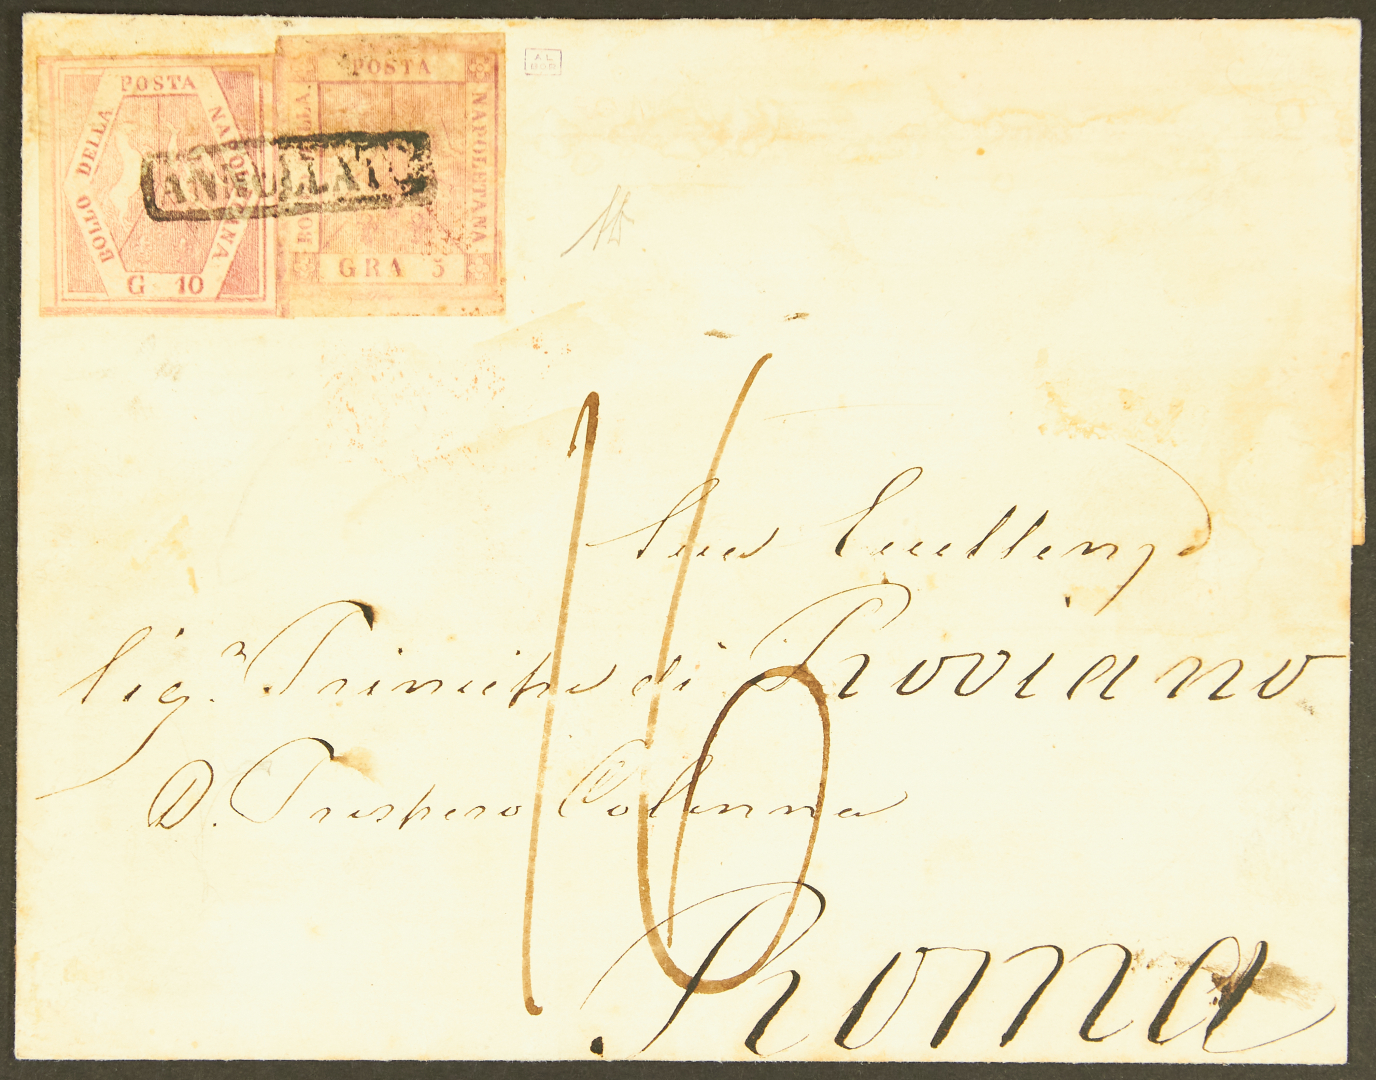 BOLLO DELLA POSTA NAPOLETANA
G 10
POSTA
NAPOLETANA
GRA 5
ANNULLATO
16
Sua Eccellenza
Sig.r Principe di Roviano
D. Prospero Colonna
Roma